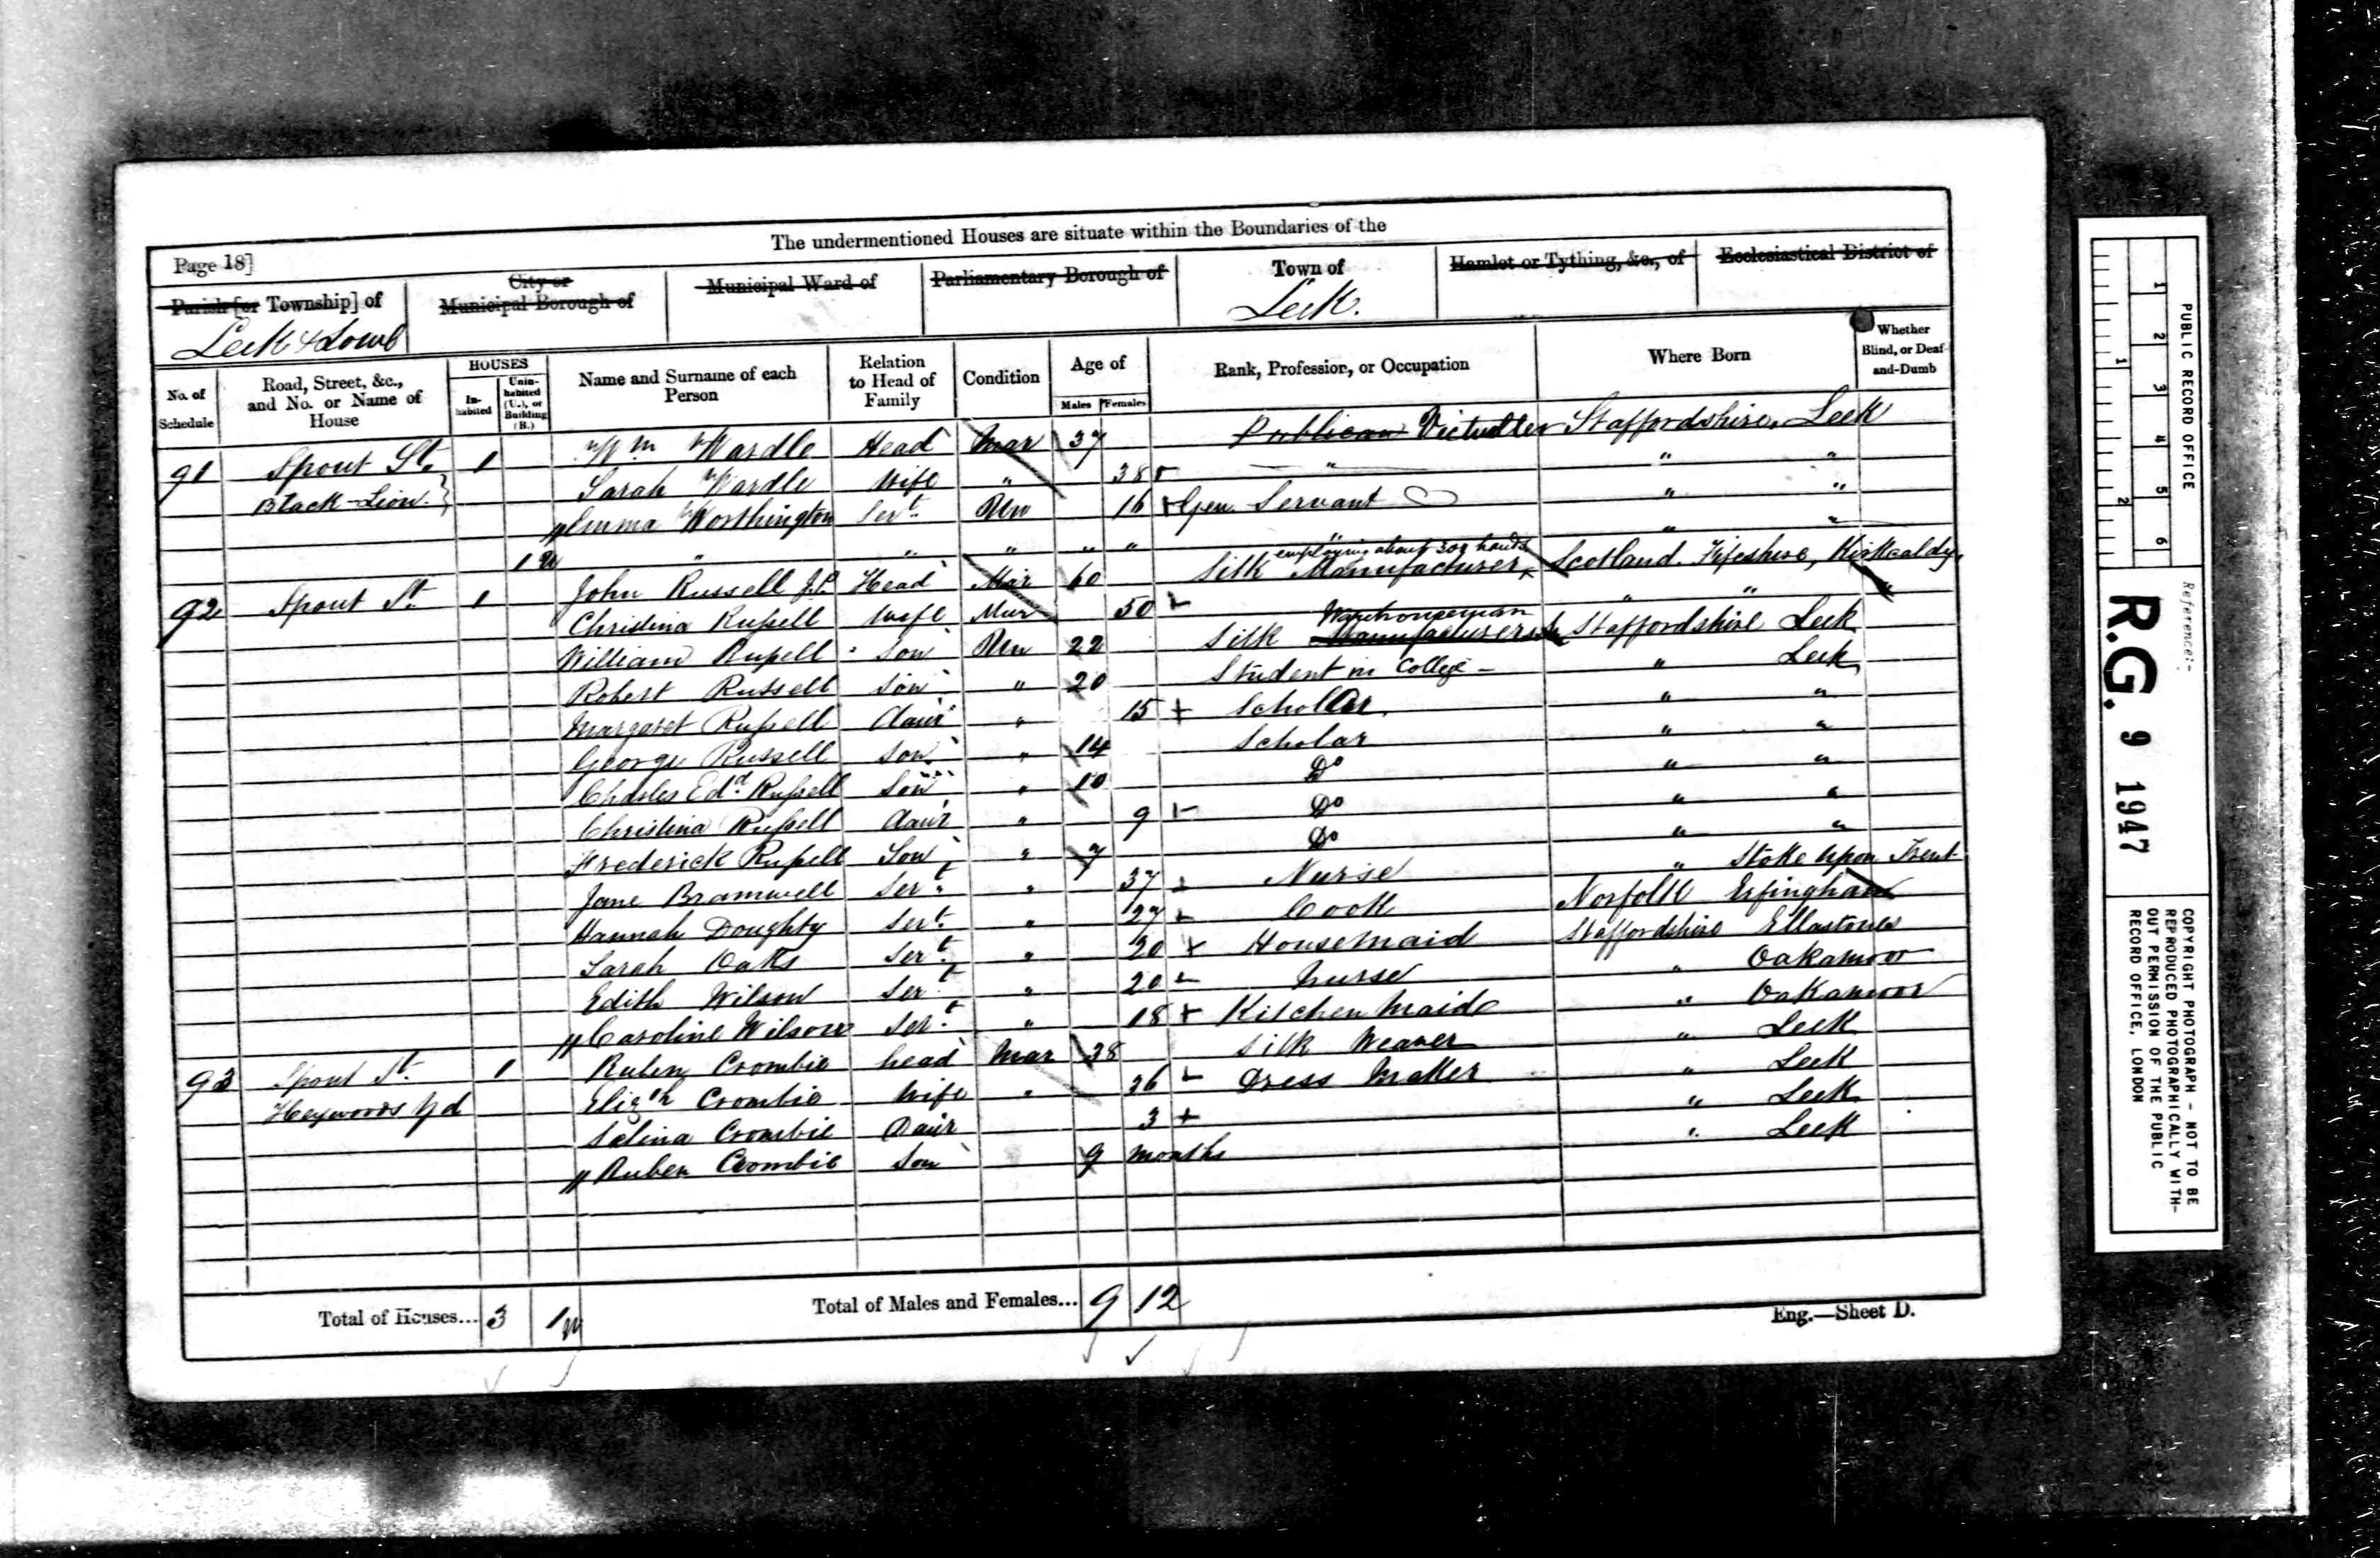 The undermentioned Houses are situate within the Boundaries of the
Page 18]
Parish [or Township] of
City or
Municipal Borough of
Municipal Ward of
Parliamentary Borough of
Town of
Hamlet or Tything, &c., of
Ecclesiastical District of
Leek & Lowe
Leek.
No. of Schedule
Road, Street, &c., and No. or Name of House
HOUSES
In-habited
Unin-habited (U.), or Building (B.)
Name and Surname of each Person
Relation to Head of Family
Condition
Age of
Males
Females
Rank, Profession, or Occupation
Where Born
Whether Blind, or Deaf-and-Dumb
91 Spout St. 1 Wm Wardle Head Mar 37 Publican Victualler Staffordshire Leek
Black Lion Sarah Wardle Wife " 38 " " "
Emma Worthington Sert. Un 16 Gen Servant " "
1 U " " " " " " " "
employing about 300 hands
92 Spout St. 1 John Russell J.P. Head Mar 60 Silk Manufacturer Scotland. Fifeshire, Kirkcaldy
Christina Russell Wife Mar 50 " " "
Warehouseman
William Russell Son Un 22 Silk Manufacturer Staffordshire Leek
Robert Russell Son " 20 Student in College " Leek
Margaret Russell Daur " 15 Scholar " "
George Russell Son " 14 Scholar " "
Charles Edd. Russell Son " 10 Do " "
Christina Russell Daur " 9 Do " "
Frederick Russell Son " 7 Do " "
Jane Bramwell Sert. " 37 Nurse " Stoke upon Trent
Hannah Doughty Sert. " 27 Cook Norfolk Erpingham
Sarah Oaks Sert. " 20 Housemaid Staffordshire Ellastone
Edith Wilson Sert " 20 Nurse " Oakamoor
Caroline Wilson Sert. " 18 Kitchen Maid " Oakamoor
93 Spout St. 1 Ruben Crombie head Mar 38 Silk Weaver " Leek
Heywoods Yd Elizth Crombie Wife " 36 Dress Maker " Leek
Selina Crombie Daur 3 " Leek
Ruben Crombie Son 9 months " Leek
Total of Houses... 3 1 U
Total of Males and Females... 9 12
Eng.—Sheet D.
1 2
1 2 3 4 5 6
PUBLIC RECORD OFFICE
Reference:-
R.G. 9 1947
COPYRIGHT PHOTOGRAPH - NOT TO BE
REPRODUCED PHOTOGRAPHICALLY WITH-
OUT PERMISSION OF THE PUBLIC
RECORD OFFICE, LONDON